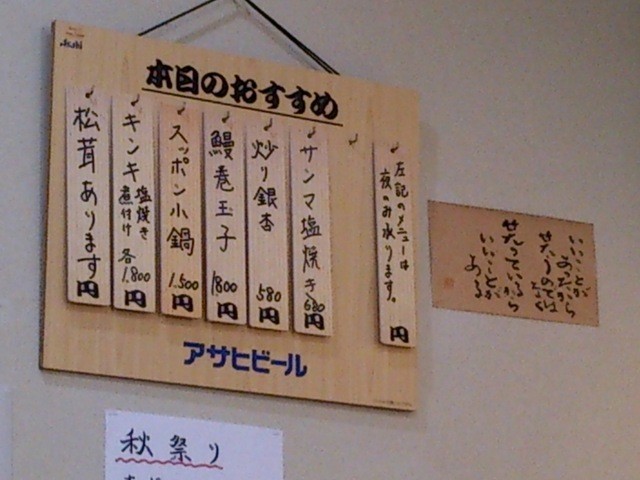 Asahi
本日のおすすめ
左記のメニューは
夜のみ承ります。
円
サンマ塩焼き
680
円
炒り銀杏
580
円
鰻巻玉子
1800
円
スッポン小鍋
1.500
円
キンキ 塩焼き
煮付け 各
1.800
円
松茸あります
円
アサヒビール
いいことが
あったから
笑うのでは
なく
笑っているから
いいことが
ある
秋祭り